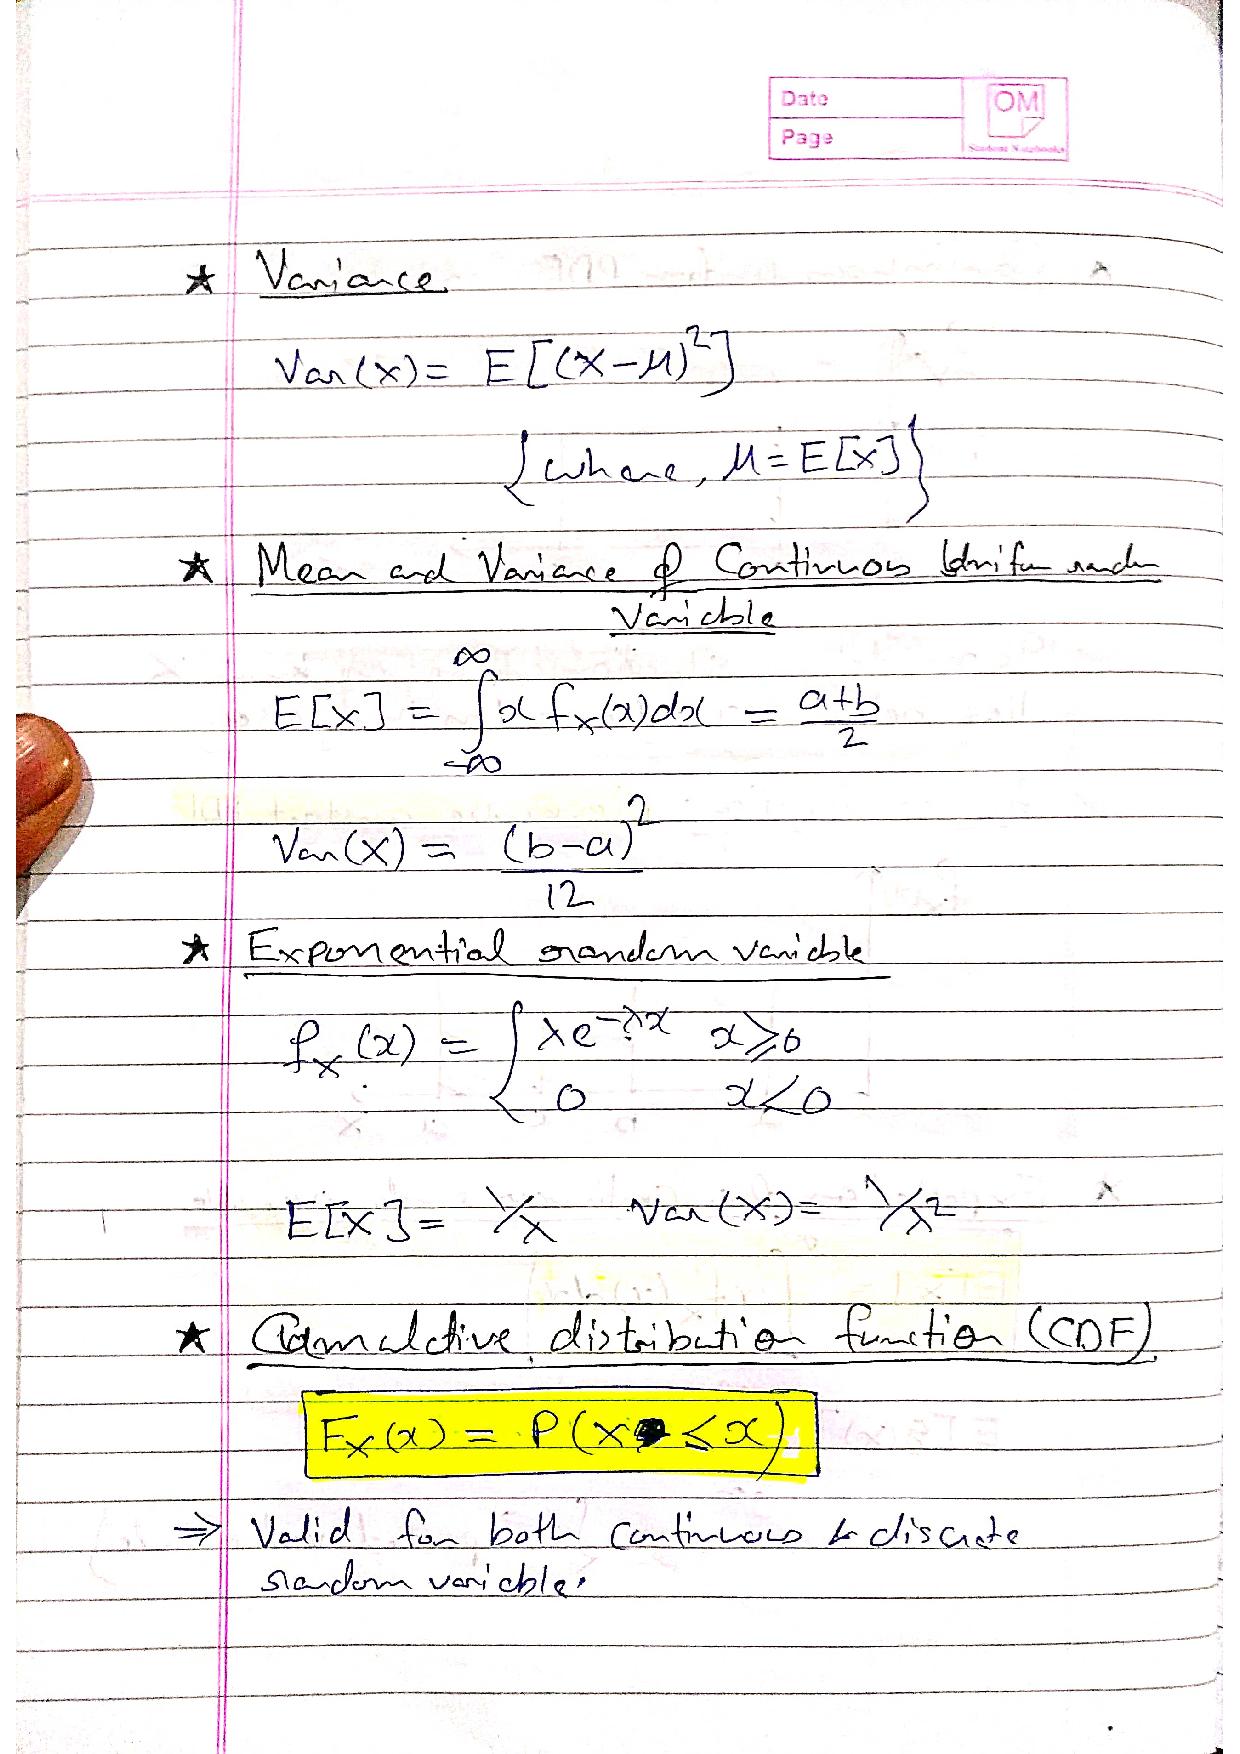 Date
OM
Page
Student Notebooks
★ Variance
Var(x) = E[(X-μ)²]
{where, μ = E[X]}
★ Mean and Variance of Continuous Uniform random
Variable
E[X] = ∫_{-∞}^{∞} x f_X(x)dx = a+b/2
Var(X) = (b-a)²/12
★ Exponential random variable
f_X(x) = { λe^{-λx} x⩾0
0 x<0
E[X] = 1/λ Var(X) = 1/λ²
★ Cumulative distribution function (CDF)
F_X(x) = P(X ≤ x)
⇒ Valid for both continuous & discrete
random variable.